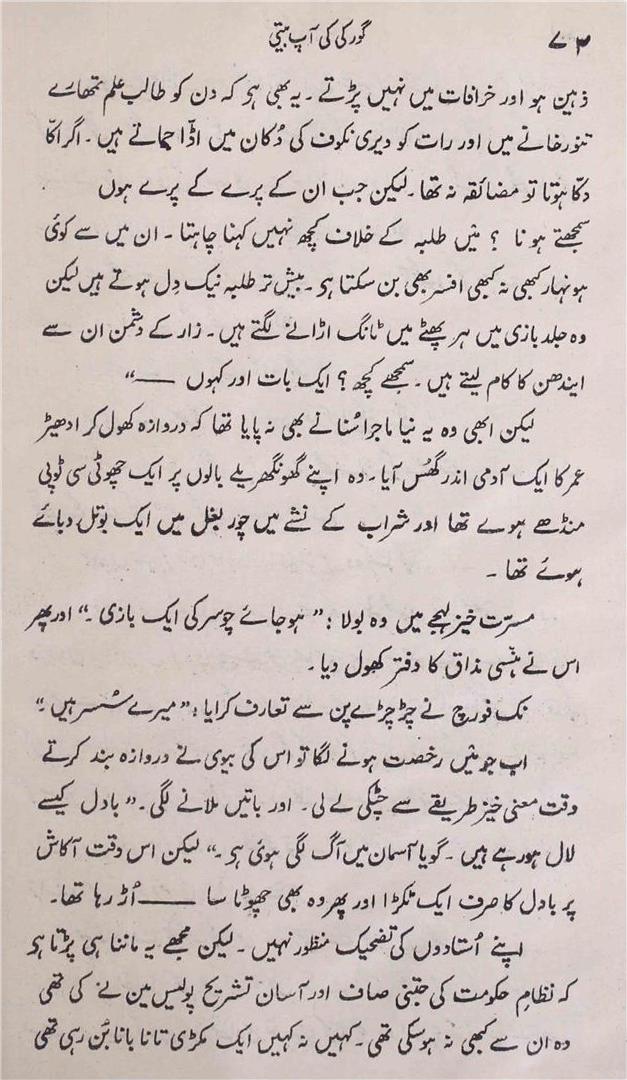 ۷۲ گورکی کی آپ بیتی
ذہین ہو اور خرافات میں نہیں پڑتے ۔ یہ بھی ہی کہ دن کو طالب علم تمھارے
تنور خانے میں اور رات کو دیری نکوف کی دُکان میں اڈّا جماتے ہیں ۔ اگر اکّا
دکّا ہوتا تو مضائقہ نہ تھا ۔ لیکن جب ان کے پرے کے پرے ہوں
سمجھتے ہو نا ؟ مَیں طلبہ کے خلاف کچھ نہیں کہنا چاہتا ۔ ان میں سے کوئ
ہونہار کبھی نہ کبھی افسر بھی بن سکتا ہی ۔ بیش تر طلبہ نیک دِل ہوتے ہیں لیکن
وہ جلد بازی میں ہر پھٹے میں ٹانگ اڑانے لگتے ہیں ۔ زار کے دشمن ان سے
ایندھن کا کام لیتے ہیں ۔ سمجھے کچھ ؟ ایک بات اور کہوں ——“
لیکن ابھی وہ یہ نیا ماجرا سُنانے بھی نہ پایا تھا کہ دروازہ کھول کر ادھیڑ
عمر کا ایک آدمی اندر گھُس آیا ۔ وہ اپنے گھونگھریلے بالوں پر ایک چھوٹی سی ٹوپی
منڈھے ہوے تھا اور شراب کے نشے میں چور بغل میں ایک بوتل دبائے
ہوئے تھا ۔
مسرّت خیز لہجے میں وہ بولا : ” ہوجائے چوسر کی ایک بازی ۔“ اور پھر
اس نے ہنسی مذاق کا دفتر کھول دیا ۔
نک فورچ نے چڑچڑے پن سے تعارف کرایا : ” میرے سُسر ہیں ۔“
اب جو مَیں رخصت ہونے لگا تو اس کی بیوی نے دروازہ بند کرتے
وقت معنی خیز طریقے سے چٹکی لے لی ۔ اور باتیں ملانے لگی ۔ ” بادل کیسے
لال ہو رہے ہیں ۔ گویا آسمان میں آگ لگی ہوئ ہی ۔“ لیکن اس وقت آکاش
پر بادل کا صرف ایک ٹکڑا اور پھر وہ بھی چھوٹا سا —— اُڑ رہا تھا ۔
اپنے اُستادوں کی تضحیک منظور نہیں ۔ لیکن مجھے یہ ماننا ہی پڑتا ہی
کہ نظامِ حکومت کی جتنی صاف اور آسان تشریح پولیس مین نے کی تھی
وہ ان سے کبھی نہ ہوسکی تھی ۔ کہیں نہ کہیں ایک مکڑی تانا بانا بُن رہی تھی